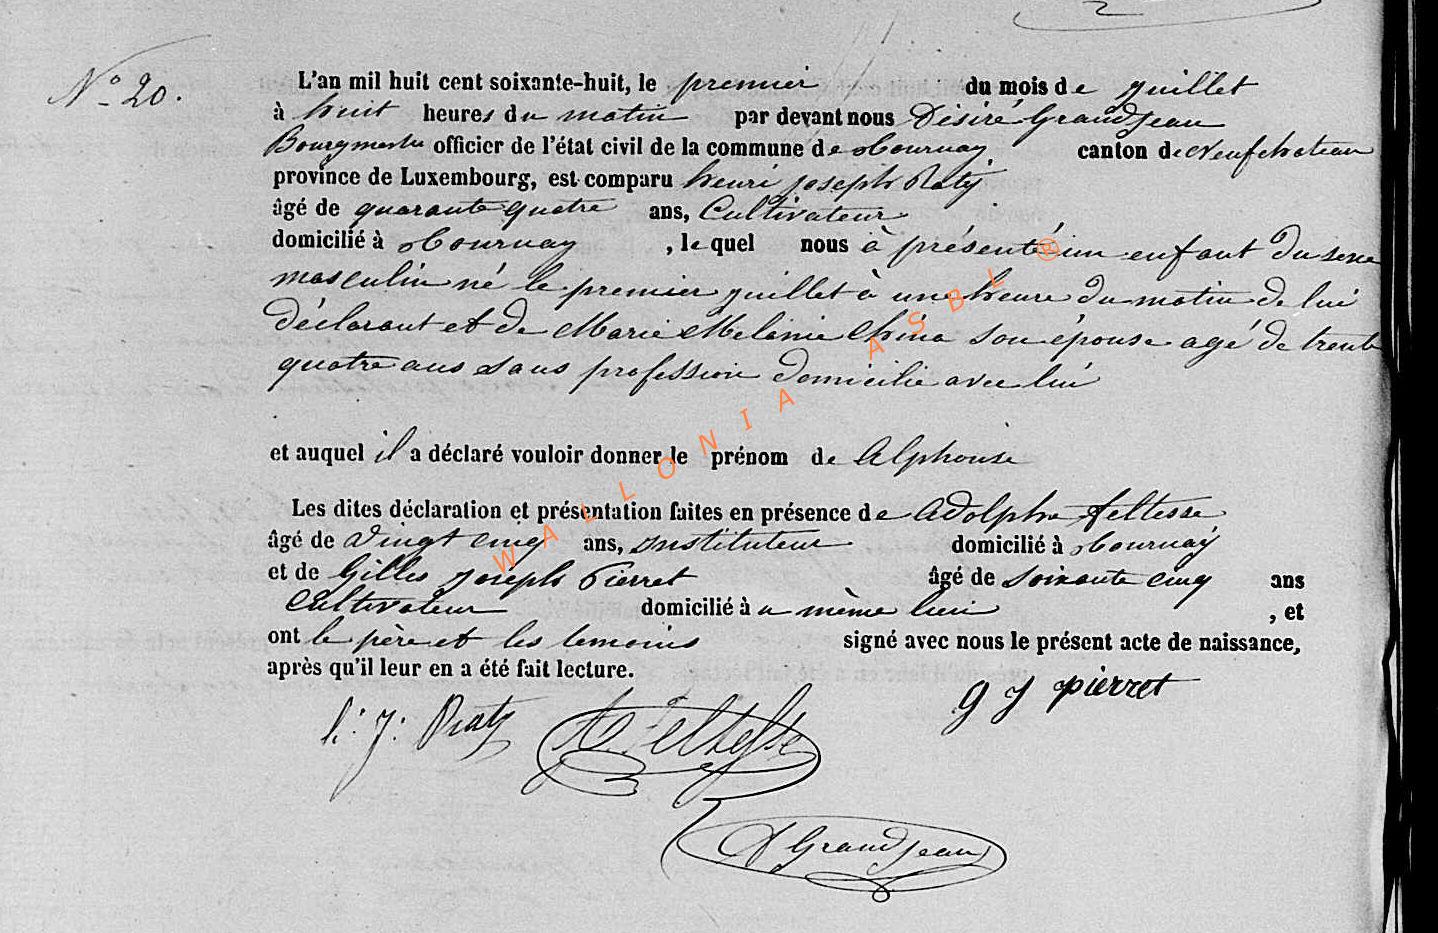 N° 20.
L'an mil huit cent soixante-huit, le premier du mois de juillet
à huit heures du matin par devant nous Désiré Grandjean
Bourgmestre officier de l'état civil de la commune de Tournay canton de Neufchateau
province de Luxembourg, est comparu henri joseph Raty
âgé de quarante quatre ans, Cultivateur
domicilié à Tournay , lequel nous à présenté un enfant du sexe
masculin né le premier juillet à une heure du matin de lui
déclarant et de Marie Melanie China son épouse agé de trente
quatre ans sans profession domicilié avec lui
et auquel il a déclaré vouloir donner le prénom de Alphonse
Les dites déclaration et présentation faites en présence de Adolphe feltesse
âgé de vingt cinq ans, instituteur domicilié à Tournay
et de Gilles joseph Pierret âgé de soixante cinq ans
Cultivateur domicilié à u même lieu , et
ont le père et les temoins signé avec nous le présent acte de naissance,
après qu'il leur en a été fait lecture.
h: j: Raty
A. feltesse
g j pierret
D Grandjean
WALLONIA ASBL ®